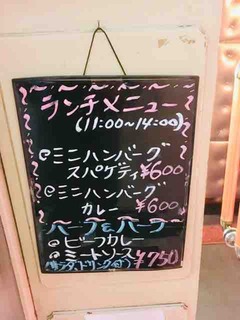 ランチメニュー
(11:00~14:00)
ミニハンバーグ
スパゲティ ¥600
ミニハンバーグ
カレー ¥600
ハーフ&ハーフ
ビーフカレー
ミートソース ¥750
(サラダ、ドリンク付)